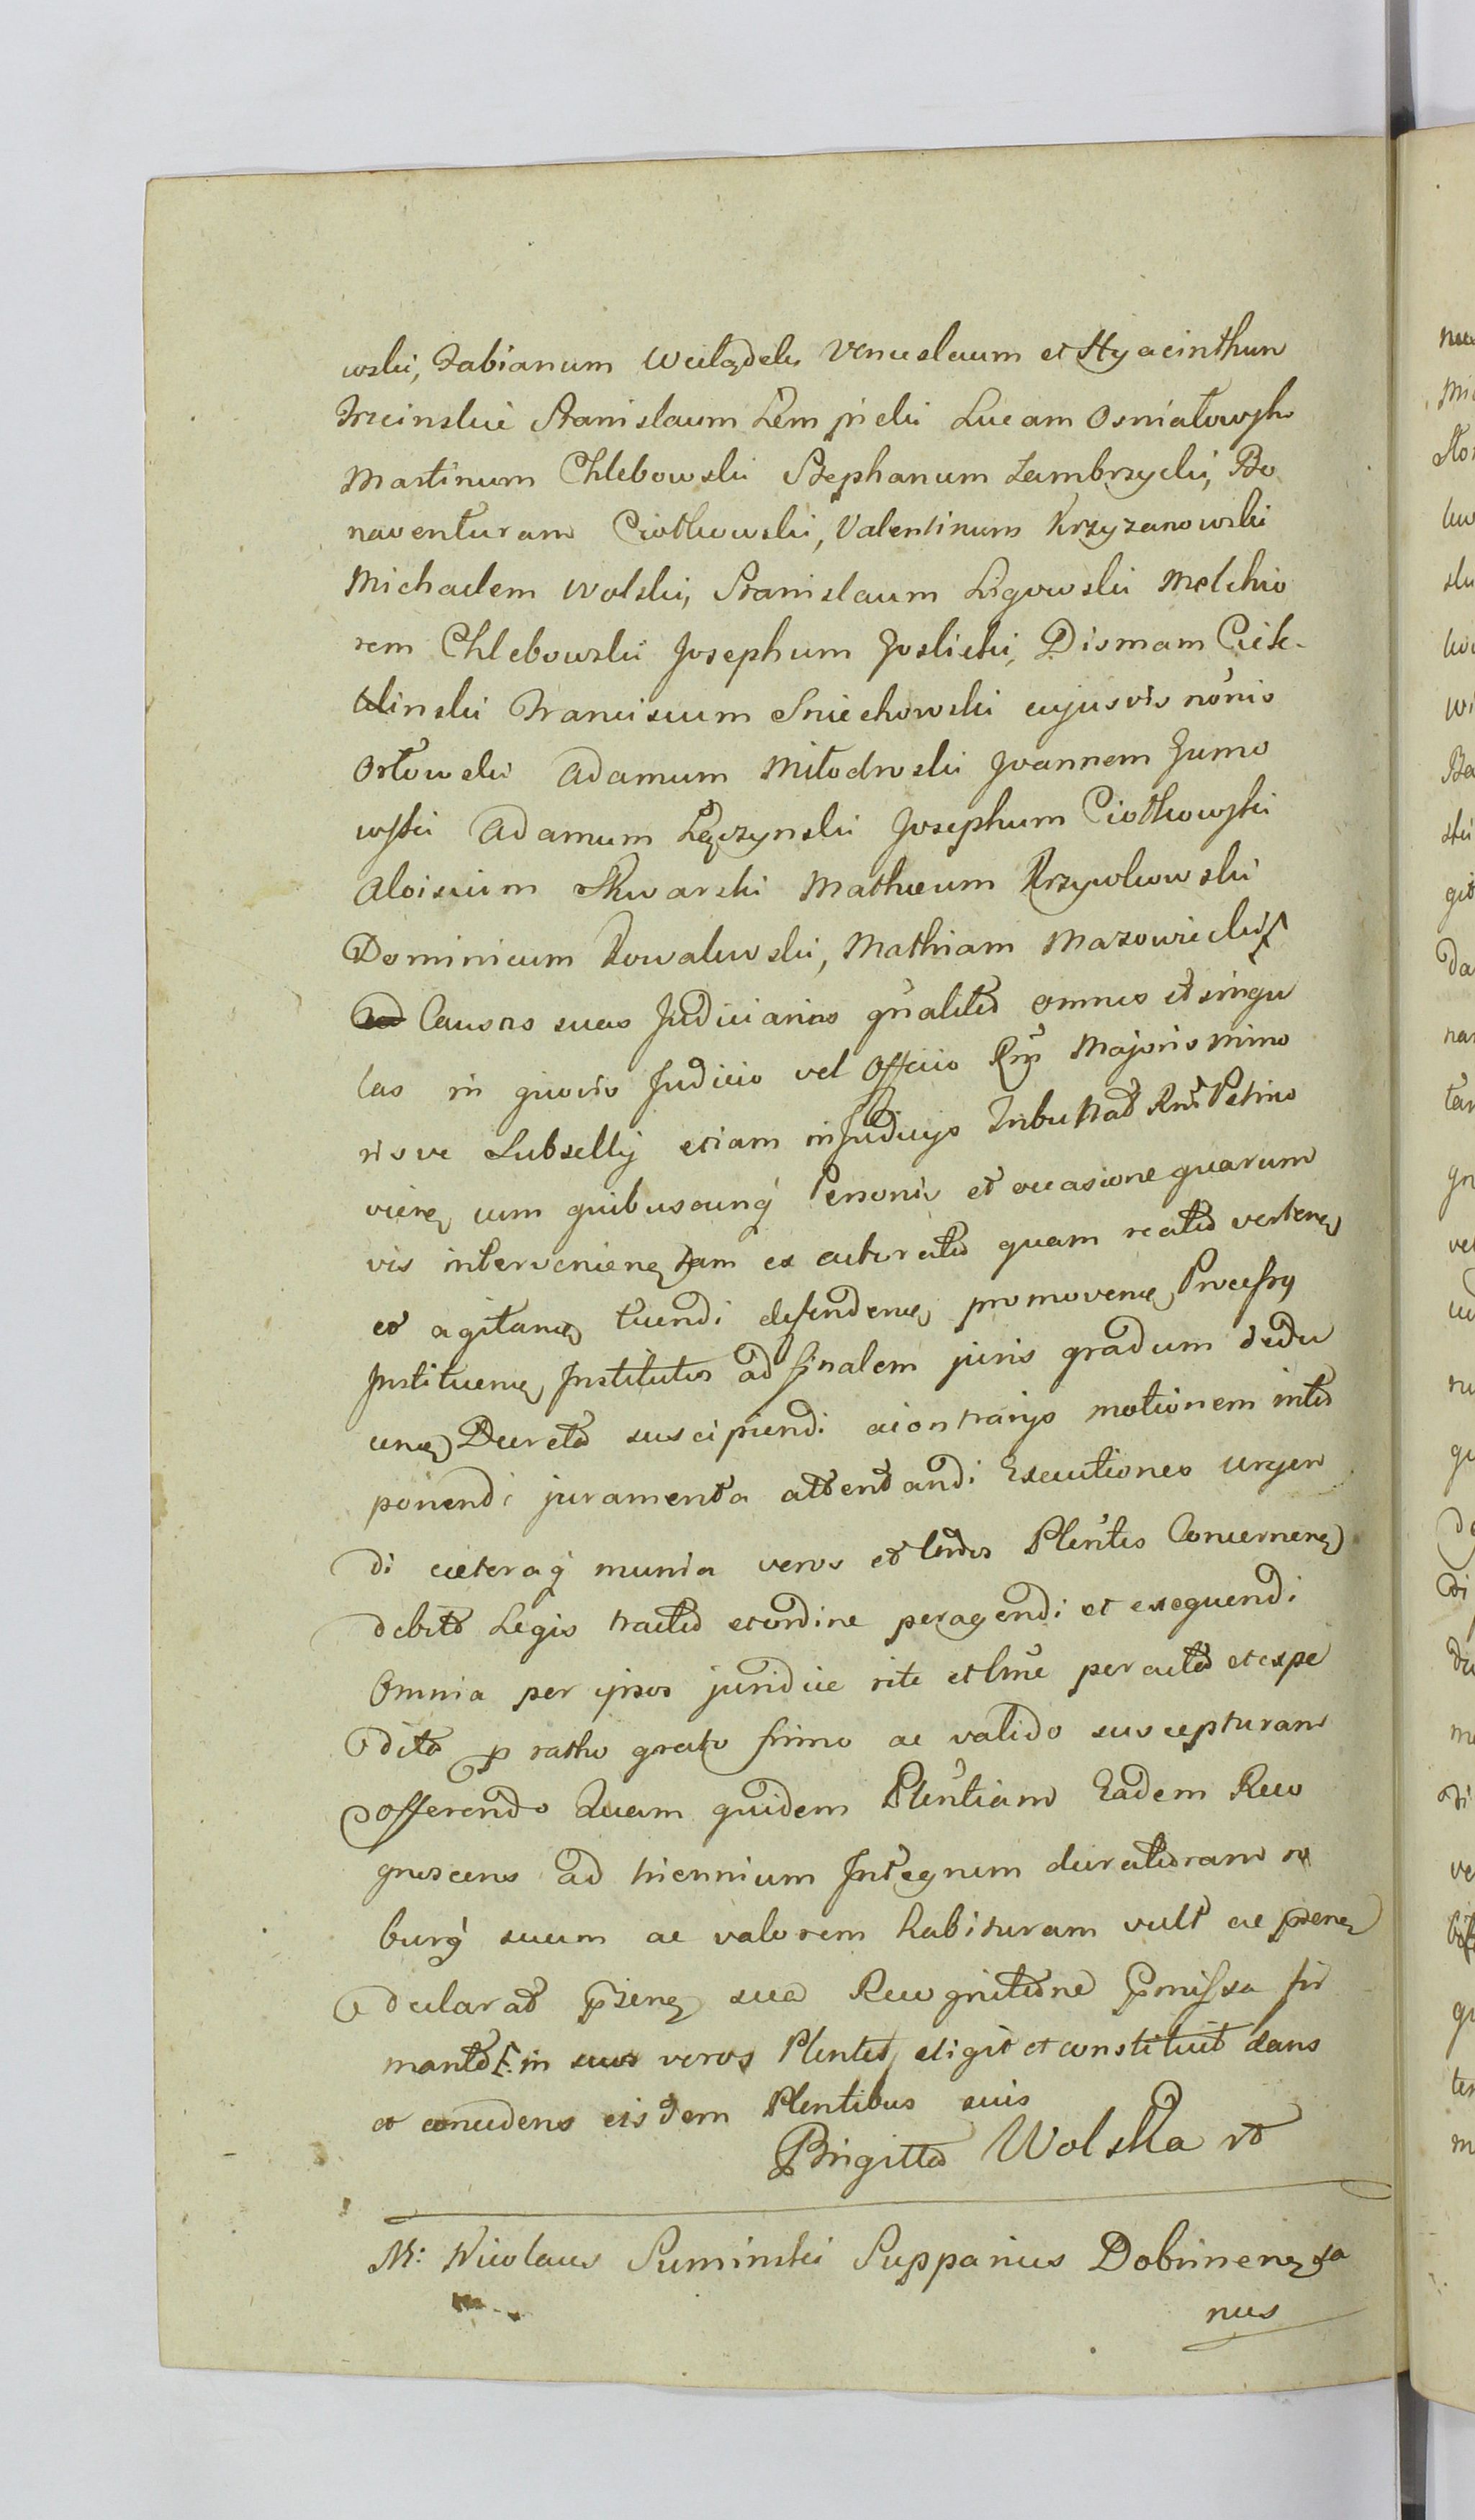 wski, Fabianum Welądek Venceslaum et Hyacinthum
Trzcinskie Stanislaum Lempicki Lucam Osniałowski
Martinum Chlebowski Stephanum Zambrzycki, Bo
naventuram Ciołkowski, Valentinum Krzyzanowski
Michaelem Wolski, Stanislaum Ligowski Melchio
rem Chlebowski Josephum Joslicki, Dismam Ciek-
linski Franciscum Sniechowski cujusvis nonis
Orłowski Adamum Miłodrowski Joannem Zumo
wski Adamum Łączynski Josephum Ciołkowski
Aloisium Skwarski Mathæum Krzywkowski
Dominicum Kowalewski, Mathiam Mazowiecki
Causas suas Judiciarias gñaliter omnes et singu
las in quovis Judicio vel Officio Rni Majoris mino
risve Subsellij etiam in Judicijs Tribu Rni Petrico
vien cum quibuscunq Personis et occasione quarum
vis intervenien tam ex actoratu quam reatu verten
et agitan tuendi defenden promoven Processus
Instituen Institutos ad finalem juris gradum dedu
cen Decreta suscipiendi a contrarijs motionem inter
ponendi juramenta attentandi Executiones urgen
di cæteraq munia veros et Plentes Concernen
debito Legis tractu et ordine peragendi et exequendi
Omnia per ipsos juridice rite et peracta et expe
dita p ratho grato firmo ac valido suscepturam
offerendo Quam quidem Plentiam Eadem Reco
gnoscens ad triennium Integrum duraturam ro
burq suum ac valorem habituram vult ac
declarat sua Recognitione fir
mante in suos veros Plentes eligit et constituit dans
et concedens eisdem Plentibus suis
Brigitta Wolska
M: Nicolaus Suminski Suppanius Dobrinen sa
nus